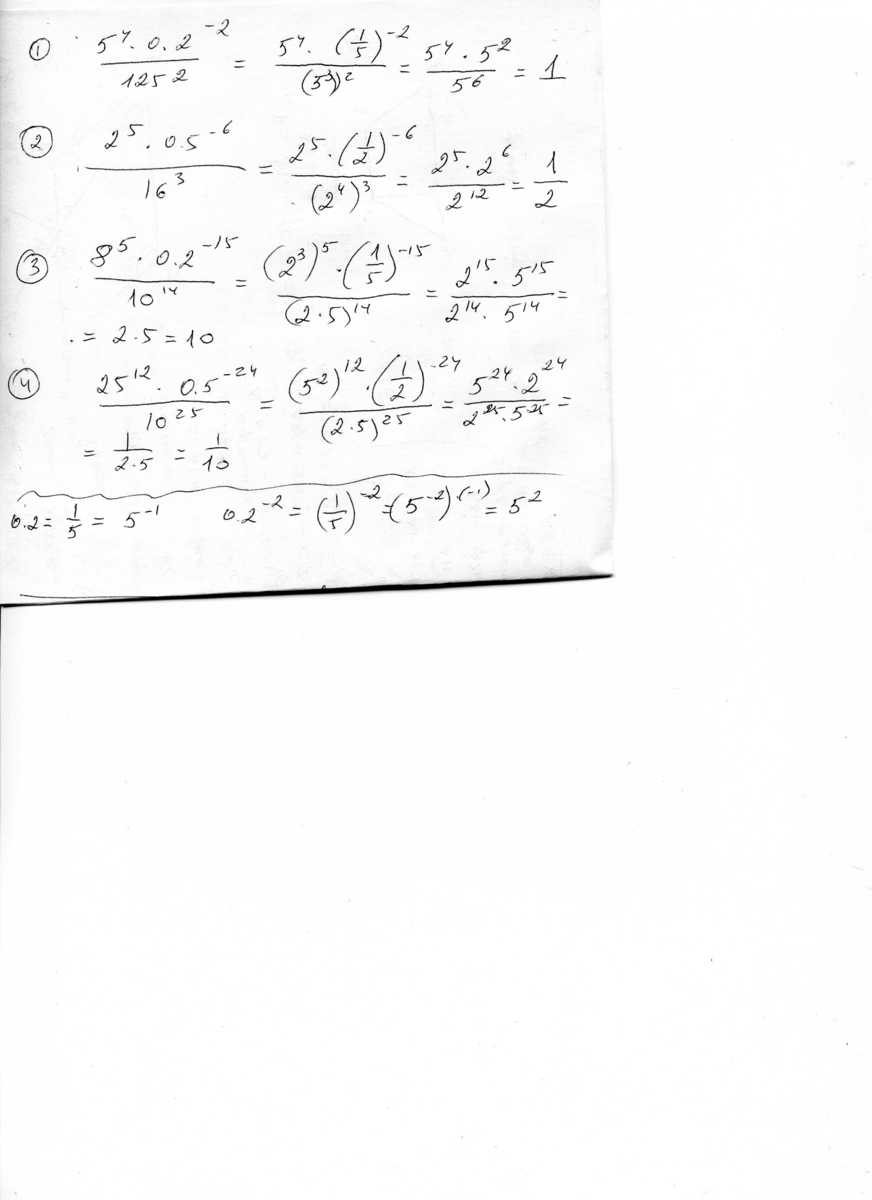 ① 5⁴·0.2⁻² / 125² = 5⁴·(1/5)⁻² / (5³)² = 5⁴·5² / 5⁶ = 1
② 2⁵·0.5⁻⁶ / 16³ = 2⁵·(1/2)⁻⁶ / (2⁴)³ = 2⁵·2⁶ / 2¹² = 1/2
③ 8⁵·0.2⁻¹⁵ / 10¹⁴ = (2³)⁵·(1/5)⁻¹⁵ / (2·5)¹⁴ = 2¹⁵·5¹⁵ / 2¹⁴·5¹⁴ =
= 2·5 = 10
④ 25¹²·0.5⁻²⁴ / 10²⁵ = (5²)¹²·(1/2)⁻²⁴ / (2·5)²⁵ = 5²⁴·2²⁴ / 2²⁵·5²⁵ =
= 1/2·5 = 1/10
0.2 = 1/5 = 5⁻¹ 0.2⁻² = (1/5)⁻² = (5⁻²)·⁽⁻¹⁾ = 5²